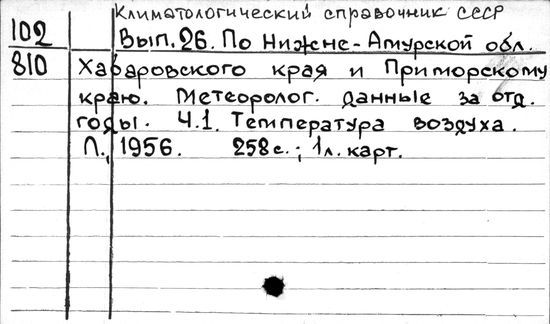 Климатологический справочник СССР
102 Вып. 26. По Нижне-Амурской обл.
810 Хабаровского края и Приморскому
краю. Метеоролог. данные за отд.
годы. Ч.1. Температура воздуха.
Л., 1956. 258 с.; 1 л. карт.